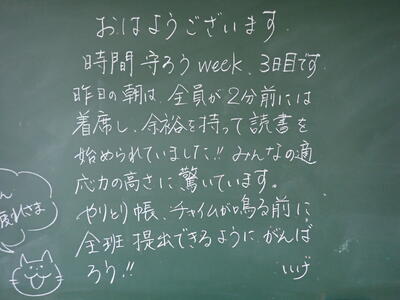 おはようございます
時間守ろうweek、3日目です
昨日の朝は、全員が2分前には
着席し、余裕を持って読書を
始められていました!! みんなの適
応力の高さに驚いています。
やりとり帳、チャイムが鳴る前に
全班提出できるようにがんば
ろう!!